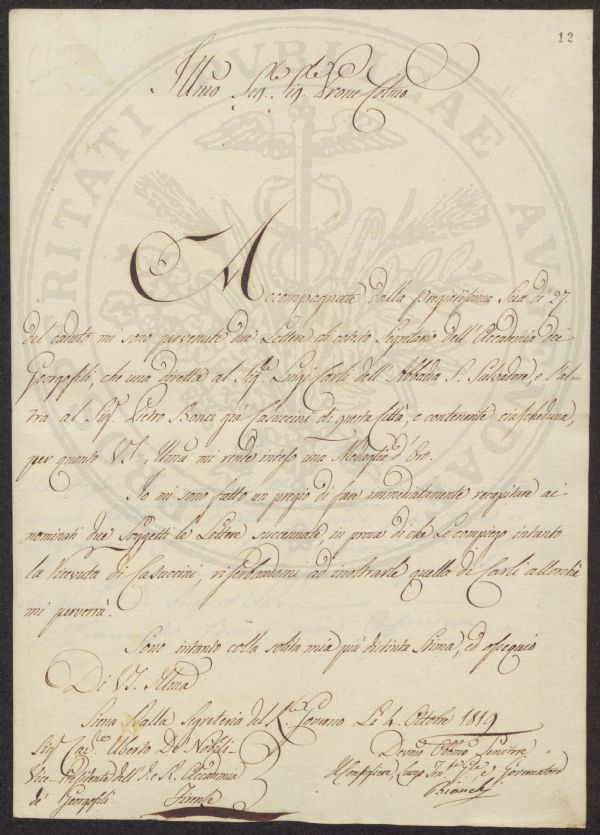 12
Illmo Sig. Sig. Prone Colmo
Accompagnate dalla Pregiatissima Sua di 27.
del caduto mi sono pervenute due Lettere di cotesto Segretario dell'Accademia dei
Georgofili, che una diretta al Sigr. Luigi Carli dell'Abbadia S. Salvadore, e l'al-
tra al Sigr. Pietro Bonci già Casuccini di questa Città, e contenente ciascheduna,
per quanto VS. Illma mi rende inteso una Medaglia d'Oro.
Io mi sono fatto un pregio di fare immediatamente recapitare ai
nominati due Soggetti le Lettere succennate, in prova di che Le compiego intanto
la ricevuta di Casuccini, riserbandomi ad inoltrarle quella di Carli allorchè
mi perverrà.
Sono intanto colla solita mia più distinta stima, ed ossequio
Di VS. Illma
Siena Dalla Segreteria del R. Governo Li 4. Ottobre 1819
Sigr. Cav. Uberto De Nobili
Vice-Presidente dell'I. e R. Accademia
de' Georgofili Firenze
Devmo Obbmo Servitore
Governatore
Bianchi
BONARUM PUBLICAE AUGENDAE